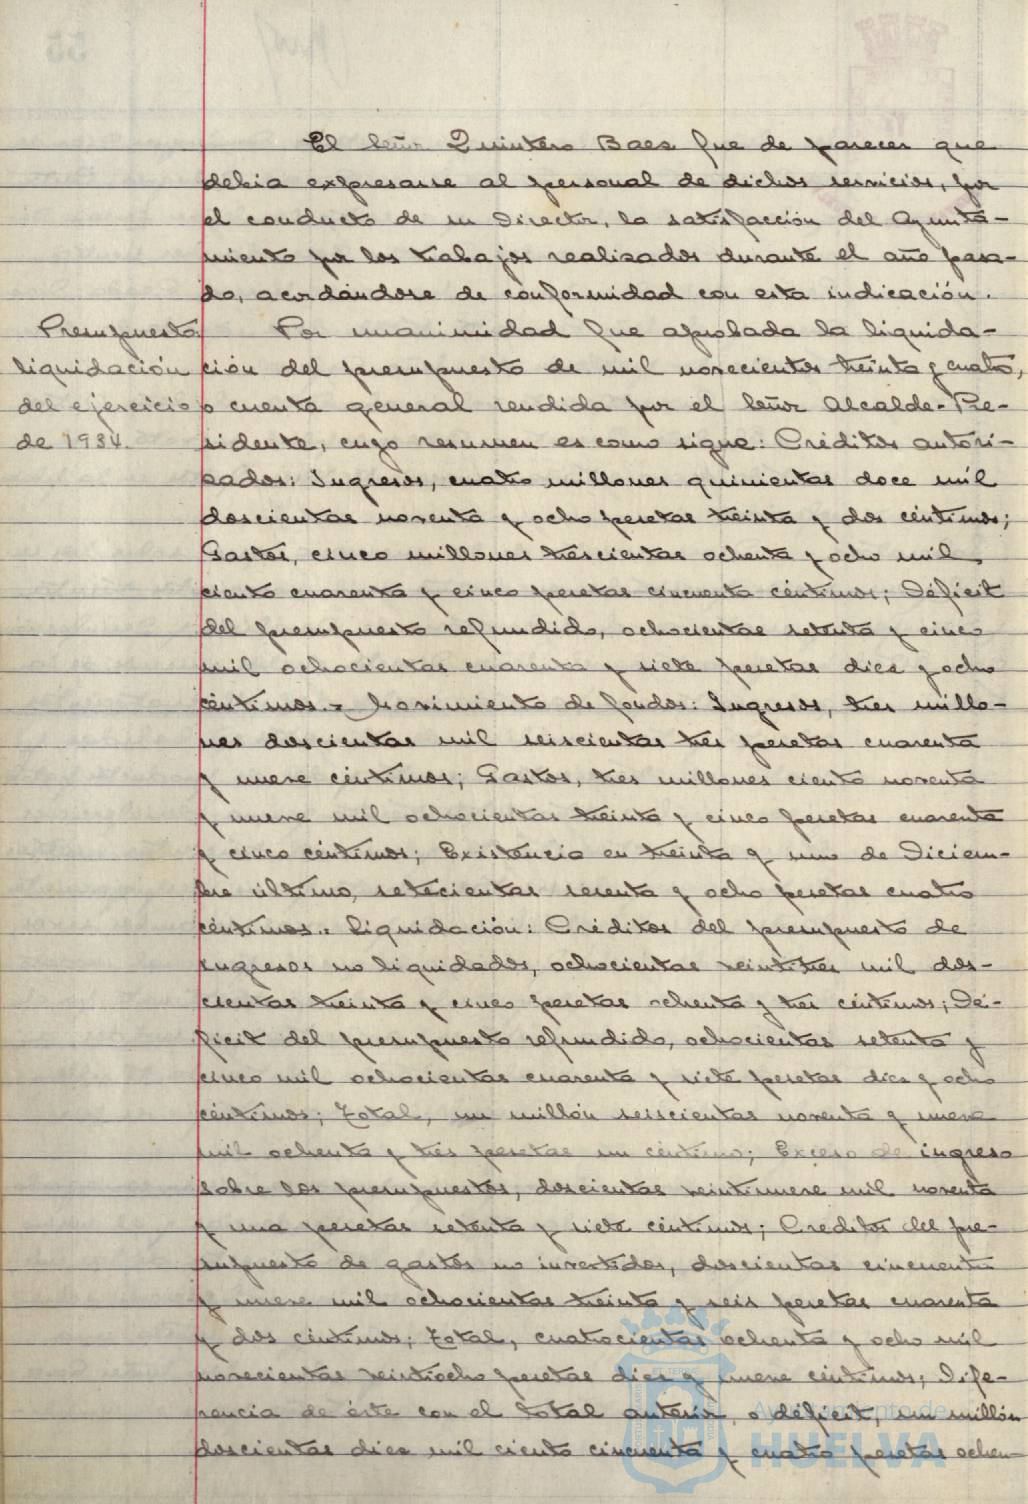 El Señor Quintero Baez fue de parecer que
debia expresarse al personal de dichos servicios, por
el conducto de su Director, la satisfacción del Ayunta-
miento por los trabajos realizados durante el año pasa-
do, acordándose de conformidad con esta indicación.
Presupuesto
liquidación
del ejercicio
de 1934.
Por unanimidad fue aprobada la liquida-
ción del presupuesto de mil novecientos treinta y cuatro,
o cuenta general rendida por el Señor Alcalde-Pre-
sidente, cuyo resumen es como sigue: Créditos autori-
zados: Ingresos, cuatro millones quinientas doce mil
doscientas noventa y ocho pesetas treinta y dos céntimos;
Gastos, cinco millones trescientas ochenta y ocho mil
ciento cuarenta y cinco pesetas cincuenta céntimos; Déficit
del presupuesto refundido, ochocientas setenta y cinco
mil ochocientas cuarenta y siete pesetas diez y ocho
céntimos.- Movimiento de fondos: Ingresos, tres millo-
nes doscientas mil seiscientas tres pesetas cuarenta
y nueve céntimos; Gastos, tres millones ciento noventa
y nueve mil ochocientas treinta y cinco pesetas cuarenta
y cinco céntimos; Existencia en treinta y uno de Diciem-
bre último, setecientas sesenta y ocho pesetas cuatro
céntimos.- Liquidación: Créditos del presupuesto de
ingresos no liquidados, ochocientas veintitres mil dos-
cientas treinta y cinco pesetas ochenta y tres céntimos; Dé-
ficit del presupuesto refundido, ochocientas setenta y
cinco mil ochocientas cuarenta y siete pesetas diez y ocho
céntimos; Total, un millón seiscientas noventa y nueve
mil ochenta y tres pesetas un céntimo; Exceso de ingreso
sobre los presupuestos, doscientas veintinueve mil noventa
y una pesetas setenta y siete céntimos; Creditos del pre-
supuesto de gastos no invertidos, doscientas cincuenta
y nueve mil ochocientas treinta y seis pesetas cuarenta
y dos céntimos; Total, cuatrocientas ochenta y ocho mil
novecientas veintiocho pesetas diez y nueve céntimos; Dife-
rencia de éste con el total anterior, o déficit, un millón
doscientas diez mil ciento cincuenta y cuatro pesetas ochen-
Ayuntamiento de
HUELVA